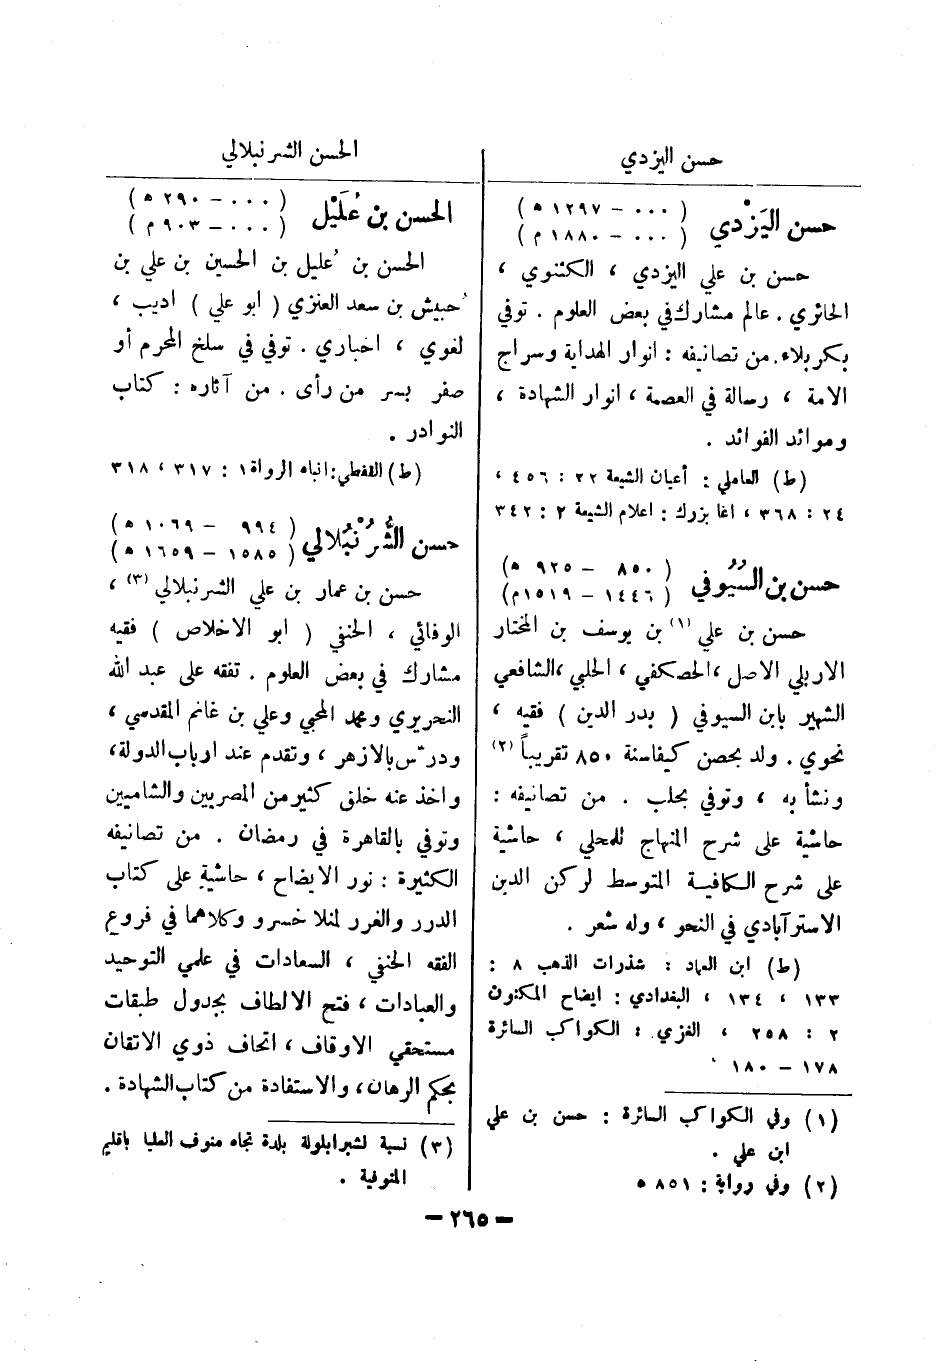 حسن اليزدي
حسن اليَزْدي ( ٠٠٠ – ١٢٩٧ ه )
( ٠٠٠ – ١٨٨٠ م )
حسن بن علي اليزدي ، الكثنوي ،
الحائري . عالم مشارك في بعض العلوم . توفي
بكربلاء. من تصانيفه : انوار الهداية وسراج
الامة ، رسالة في العصمة ، انوار الشهادة ،
وموائد الفوائد .
(ط) العاملي : أعيان الشيعة ٢٢ : ٤٥٦ ،
٢٤ : ٣٦٨ ، اغا بزرك : اعلام الشيعة ٢ : ٣٤٢
حسن بن السُيُوفي ( ٨٥٠ – ٩٢٥ ه )
( ١٤٤٦ – ١٥١٩ م )
حسن بن علي (١) بن يوسف بن المختار
الاربلي الاصل ،الحصكفي ، الحلبي ،الشافعي
الشهير بابن السيوفي ( بدر الدين ) فقيه ،
نحوي . ولد بحصن كيفا سنة ٨٥٠ تقريباً (٢)
ونشأ به ، وتوفي بحلب . من تصانيفه :
حاشية على شرح المنهاج للمحلي ، حاشية
على شرح الكافية المتوسط لركن الدين
الاسترآبادي في النحو ، وله شعر .
(ط) ابن العماد : شذرات الذهب ٨ :
١٣٣ ، ١٣٤ ، البغدادي : ايضاح المكنون
٢ : ٢٥٨ ، الغزي : الكواكب السائرة
١٧٨ – ١٨٠
(١) وفي الكواكب السائرة : حسن بن علي
ابن علي .
(٢) وفي رواية : ٨٥١ ه
الحسن الشرنبلالي
الحسن بن عُلَيْل ( ٠٠٠ – ٢٩٠ ه )
( ٠٠٠ – ٩٠٣ م )
الحسن بن عُليل بن الحسين بن علي بن
حُبيش بن سعد العنزي ( ابو علي ) اديب ،
لغوي ، اخباري . توفي في سلخ المحرم أو
صفر بسر من رأى . من آثاره : كتاب
النوادر .
(ط) القفطي: انباه الرواة ١ : ٣١٧ ، ٣١٨
حسن الشُّرُنْبُلالي ( ٩٩٤ – ١٠٦٩ ه )
( ١٥٨٥ – ١٦٥٩ م )
حسن بن عمار بن علي الشرنبلالي (٣) ،
الوفائي ، الحنفي ( ابو الاخلاص ) فقيه
مشارك في بعض العلوم . تفقه على عبد الله
النحريري ومحمد المحبي وعلي بن غانم المقدسي ،
ودرّس بالازهر ، وتقدم عند ارباب الدولة،
واخذ عنه خلق كثير من المصريين والشاميين
وتوفي بالقاهرة في رمضان . من تصانيفه
الكثيرة : نور الايضاح ، حاشية على كتاب
الدرر والغرر لمنلا خسرو وكلاهما في فروع
الفقه الحنفي ، السعادات في علمي التوحيد
والعبادات ، فتح الالطاف بجدول طبقات
مستحقي الاوقاف ، اتحاف ذوي الاتقان
بحكم الرهان، والاستفادة من كتاب الشهادة .
(٣) نسبة لشبرابلولة بلدة تجاه منوف العليا باقليم
المنوفية .
– ٢٦٥ –